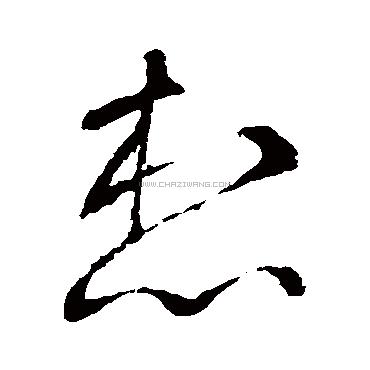 想
WWW.CHAZIWANG.COM